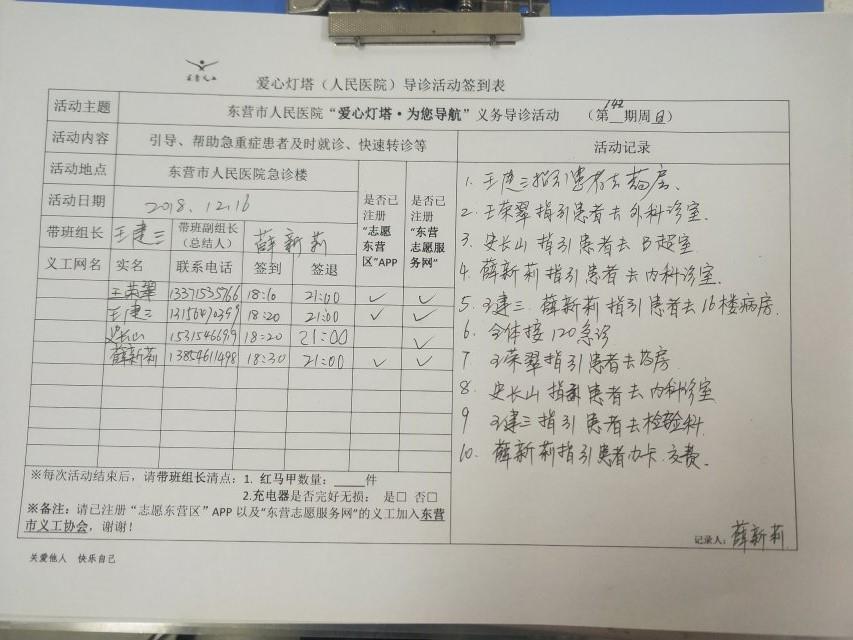 东营义工
爱心灯塔（人民医院）导诊活动签到表
活动主题 东营市人民医院“爱心灯塔·为您导航”义务导诊活动 （第142期周日）
活动内容 引导、帮助急重症患者及时就诊、快速转诊等 活动记录
活动地点 东营市人民医院急诊楼 是否已注册“志愿东营区”APP 是否已注册“东营志愿服务网”
活动日期 2018.12.16
带班组长 王建三 带班副组长（总结人） 薛新莉
义工网名 实名 联系电话 签到 签退
王荣翠 13371535766 18:10 21:00 ✓ ✓
王建三 13156490399 18:20 21:00 ✓ ✓
史长山 1531546699 18:20 21:00 ✓
薛新莉 13854611498 18:30 21:00 ✓ ✓
1. 王建三指引患者去药房、
2. 王荣翠指引患者去外科诊室.
3. 史长山指引患者去B超室
4. 薛新莉指引患者去内科诊室.
5. 王建三.薛新莉指引患者去16楼病房.
6. 全体接120急诊
7 王荣翠指引患者去药房
8. 史长山指引患者去内科诊室
9 王建三指引患者去检验科.
10. 薛新莉指引患者办卡.交费.
※每次活动结束后，请带班组长清点：1. 红马甲数量：____件
2.充电器是否完好无损： 是□ 否□
※备注：请已注册“志愿东营区”APP 以及“东营志愿服务网”的义工加入东营
市义工协会，谢谢！
记录人：薛新莉
关爱他人 快乐自己